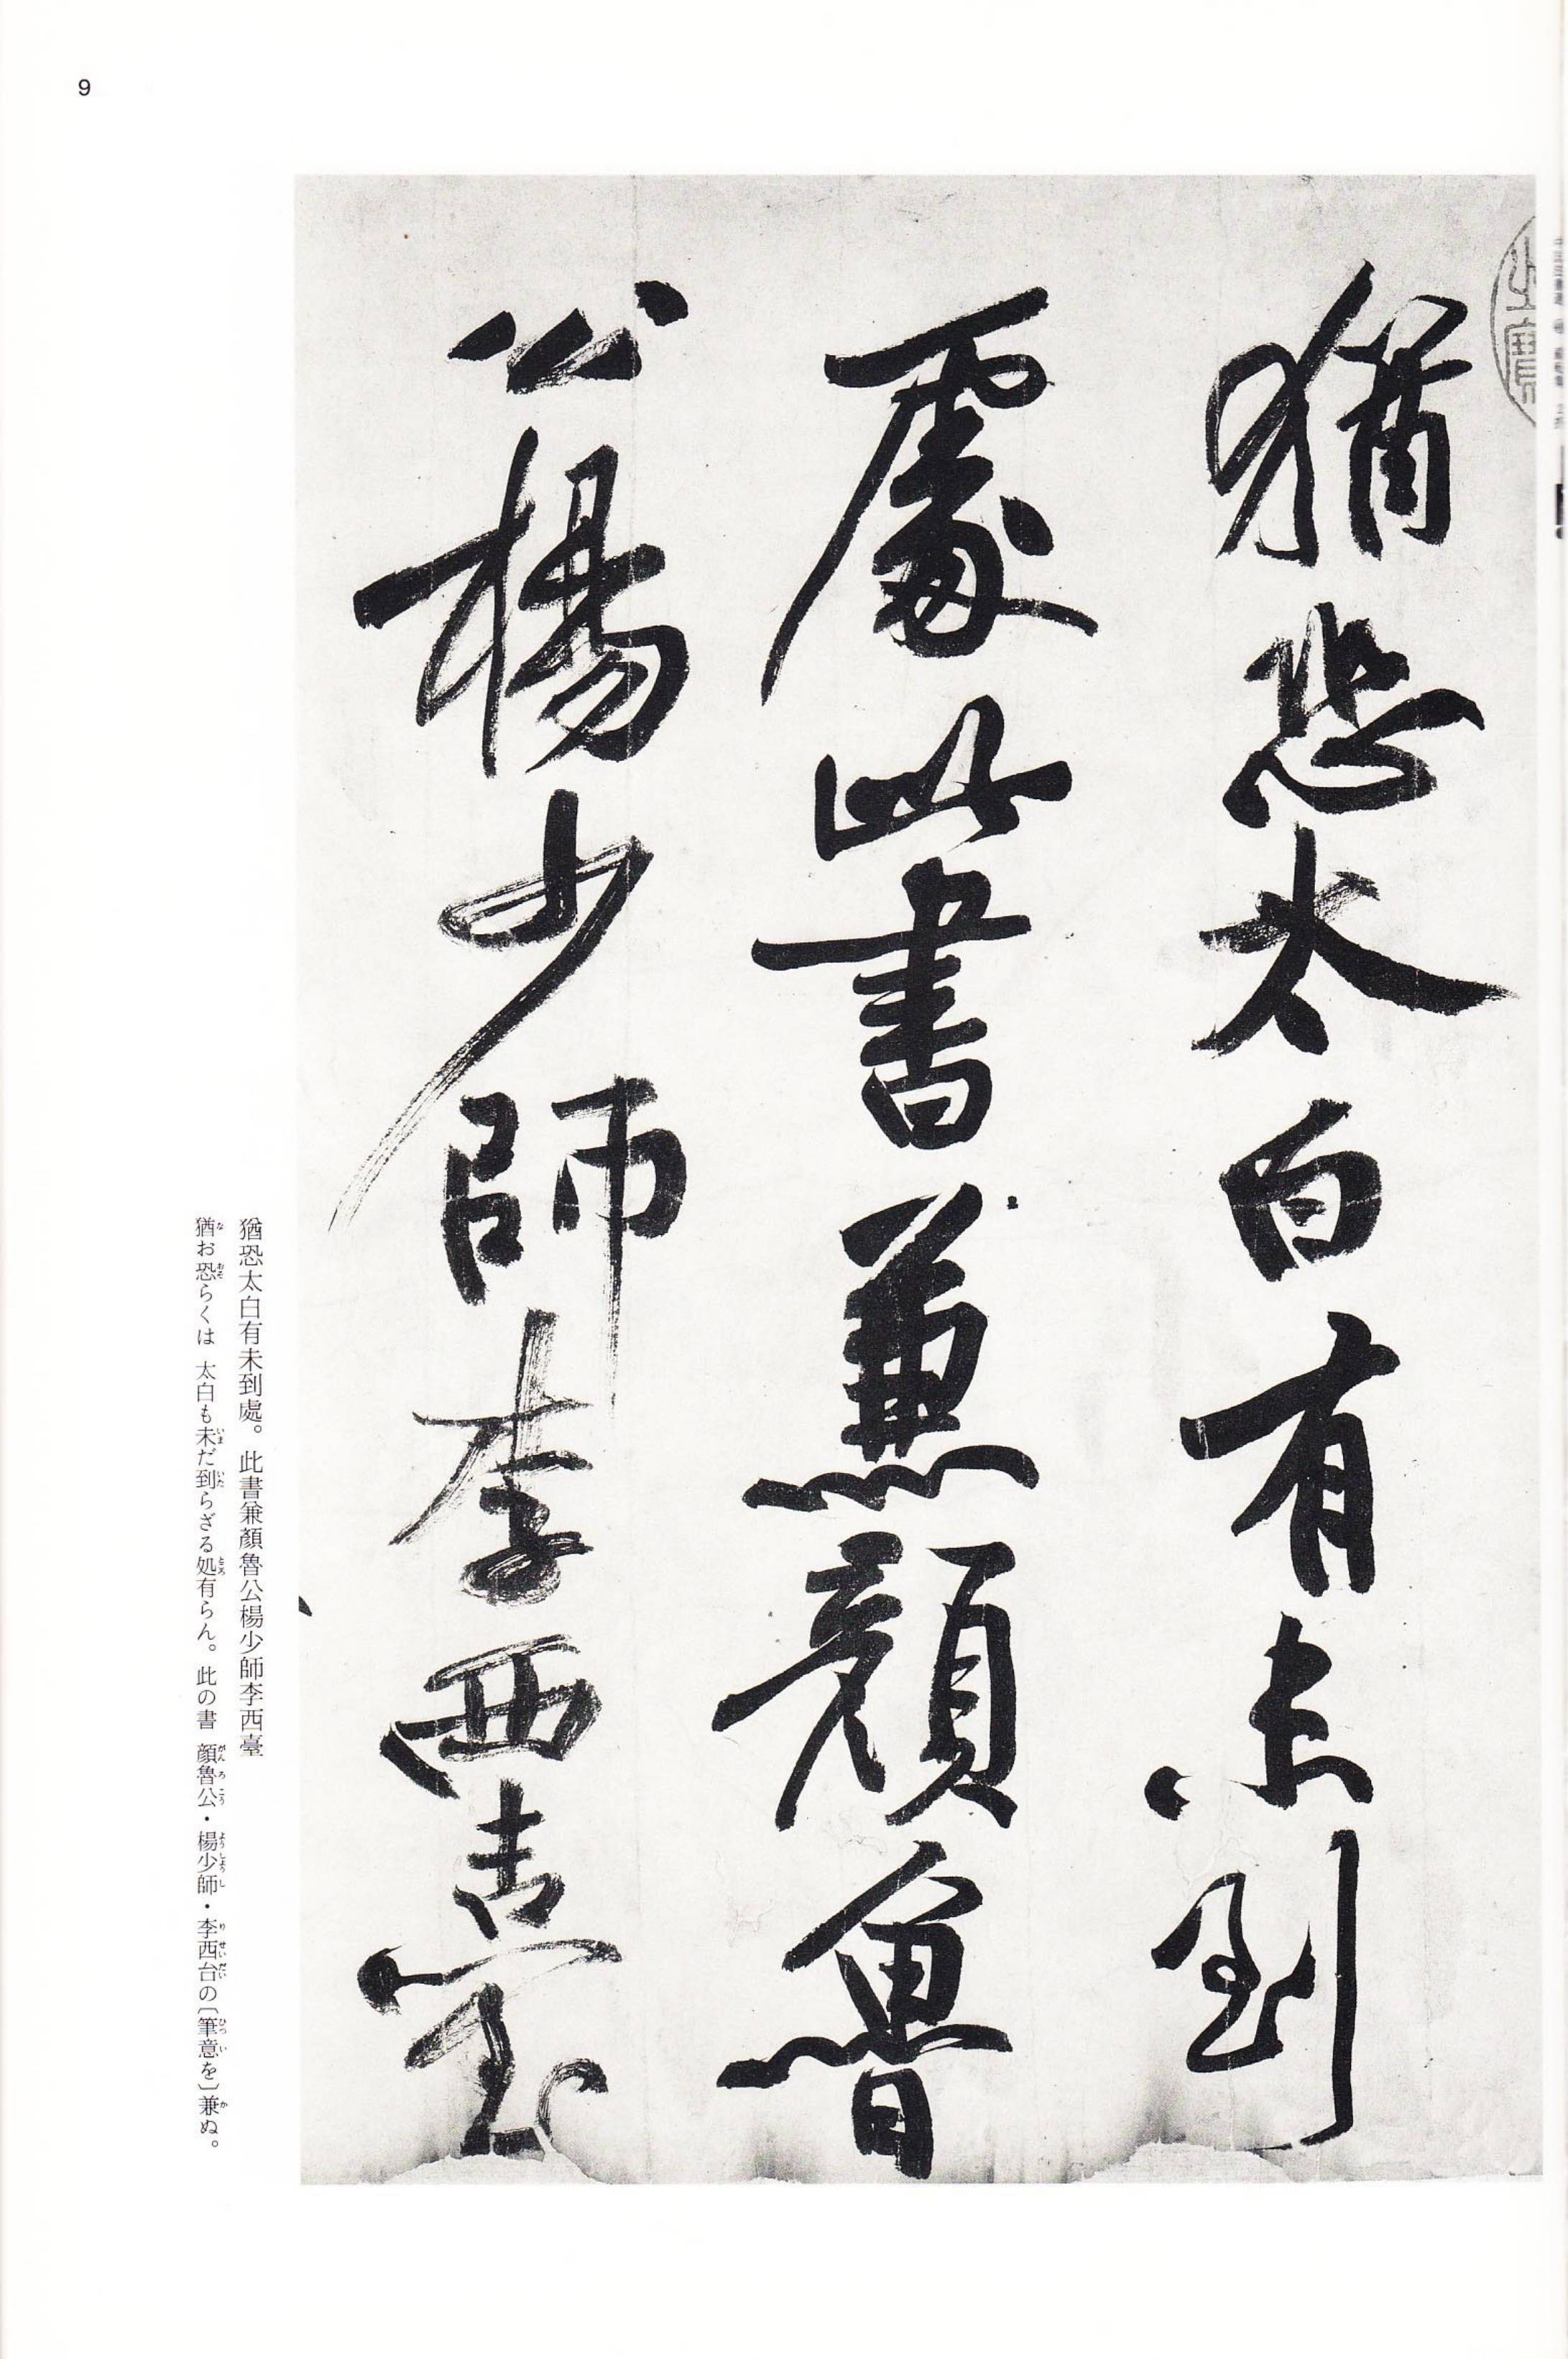 猶恐太白有未到
處此書兼顏魯
公楊少師李西臺
猶恐太白有未到處。此書兼顏魯公楊少師李西臺
猶お恐らくは 太白も未だ到らざる処有らん。此の書 顔魯公・楊少師・李西台の〔筆意を〕兼ぬ。
9